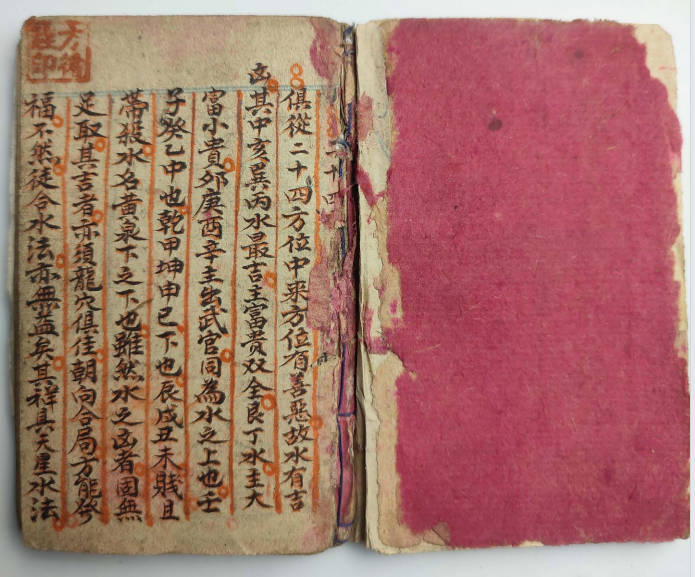 二十四
俱從二十四方位中来方位有善惡故水有吉
凶其中亥巽丙水最吉主富貴双全艮丁水主大
富小貴夘庚酉辛主出武官同為水之上也壬
子癸乙中也乾甲坤申巳下也辰戌丑未賤且
帶殺水名黄泉下之下也雖然水之凶者固無
足取其吉者亦須龍穴俱佳朝向合局方能發
福不然徒合水法亦無益矣其祥具天星水法